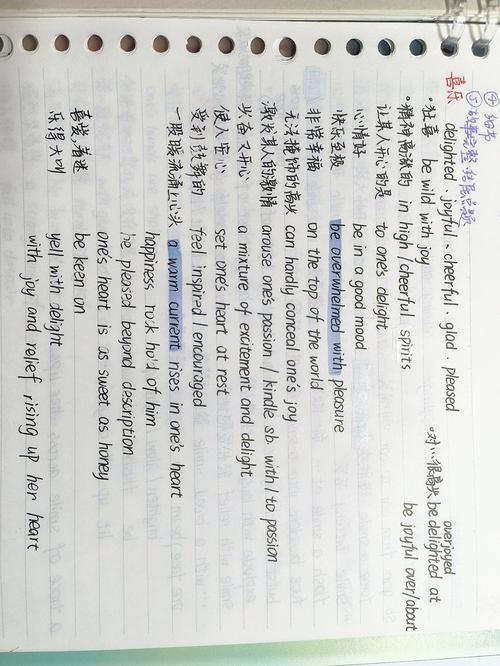 ④ 细节
⑤ 故事完整 结尾点题
喜乐 delighted. joyful. cheerful. glad. pleased
overjoyed
·狂喜 be wild with joy
·对…很高兴 be delighted at
be joyful over/about
·精神高涨的 in high/cheerful spirits
让某人开心的是 to one's delight
心情好 be in a good mood
快乐至极 be overwhelmed with pleasure
非常幸福 on the top of the world
无法掩饰的高兴 can hardly conceal one's joy
激发某人的激情 arouse one's passion / kindle sb. with/to passion
兴奋又开心 a mixture of excitement and delight
使人安心 set one's heart at rest
受到鼓舞的 feel inspired/encouraged
一股暖流涌上心头 a warm current rises in one's heart
happiness took hold of him
be pleased beyond description
one's heart is as sweet as honey
喜爱,着迷 be keen on
乐得大叫 yell with delight
with joy and relief rising up her heart